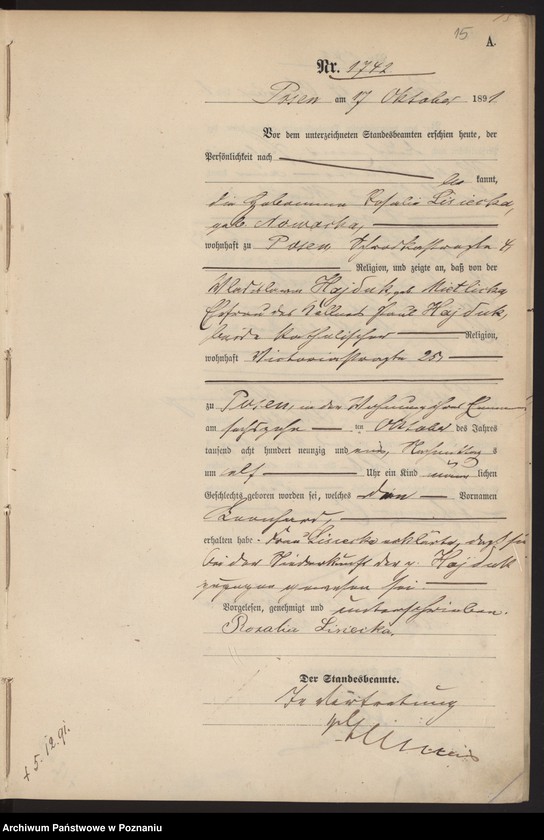 15.
A.
Nr. 1742
Posen am 17 Oktober 1891
Vor dem unterzeichneten Standesbeamten erschien heute, der
Persönlichkeit nach
be kannt,
die Hebamme Rosalie Lisiecka,
geb Nowacka,
wohnhaft zu Posen 4
Religion, und zeigte an, daß von der
Hajduk geb
Ehefrau des Kellners Paul Hajduk,
beide katholischer Religion,
wohnhaft Victoriastraße 25,
zu Posen, in der Wohnung ihres
am sechszehn ten Oktober des Jahres
tausend acht hundert neunzig und eins, Nachmittags
um elf Uhr ein Kind männ lichen
Geschlechts geboren worden sei, welches den Vornamen
Leonhard,
erhalten habe. Frau Lisiecka erklärte, daß sie
bei der Niederkunft der p. Hajduk
zugegen gewesen sei.
Vorgelesen, genehmigt und unterschrieben.
Rosalie Lisiecka.
Der Standesbeamte.
In Vertretung
+ 5.12.91.
Archiwum Państwowe w Poznaniu